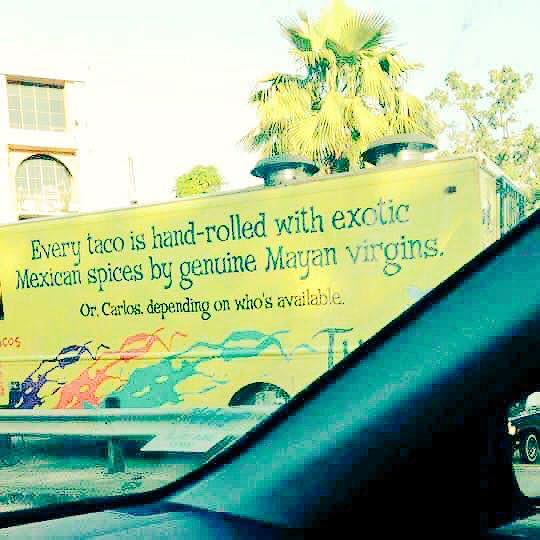 Every taco is hand-rolled with exotic
Mexican spices by genuine Mayan virgins.
Or, Carlos, depending on who's available.